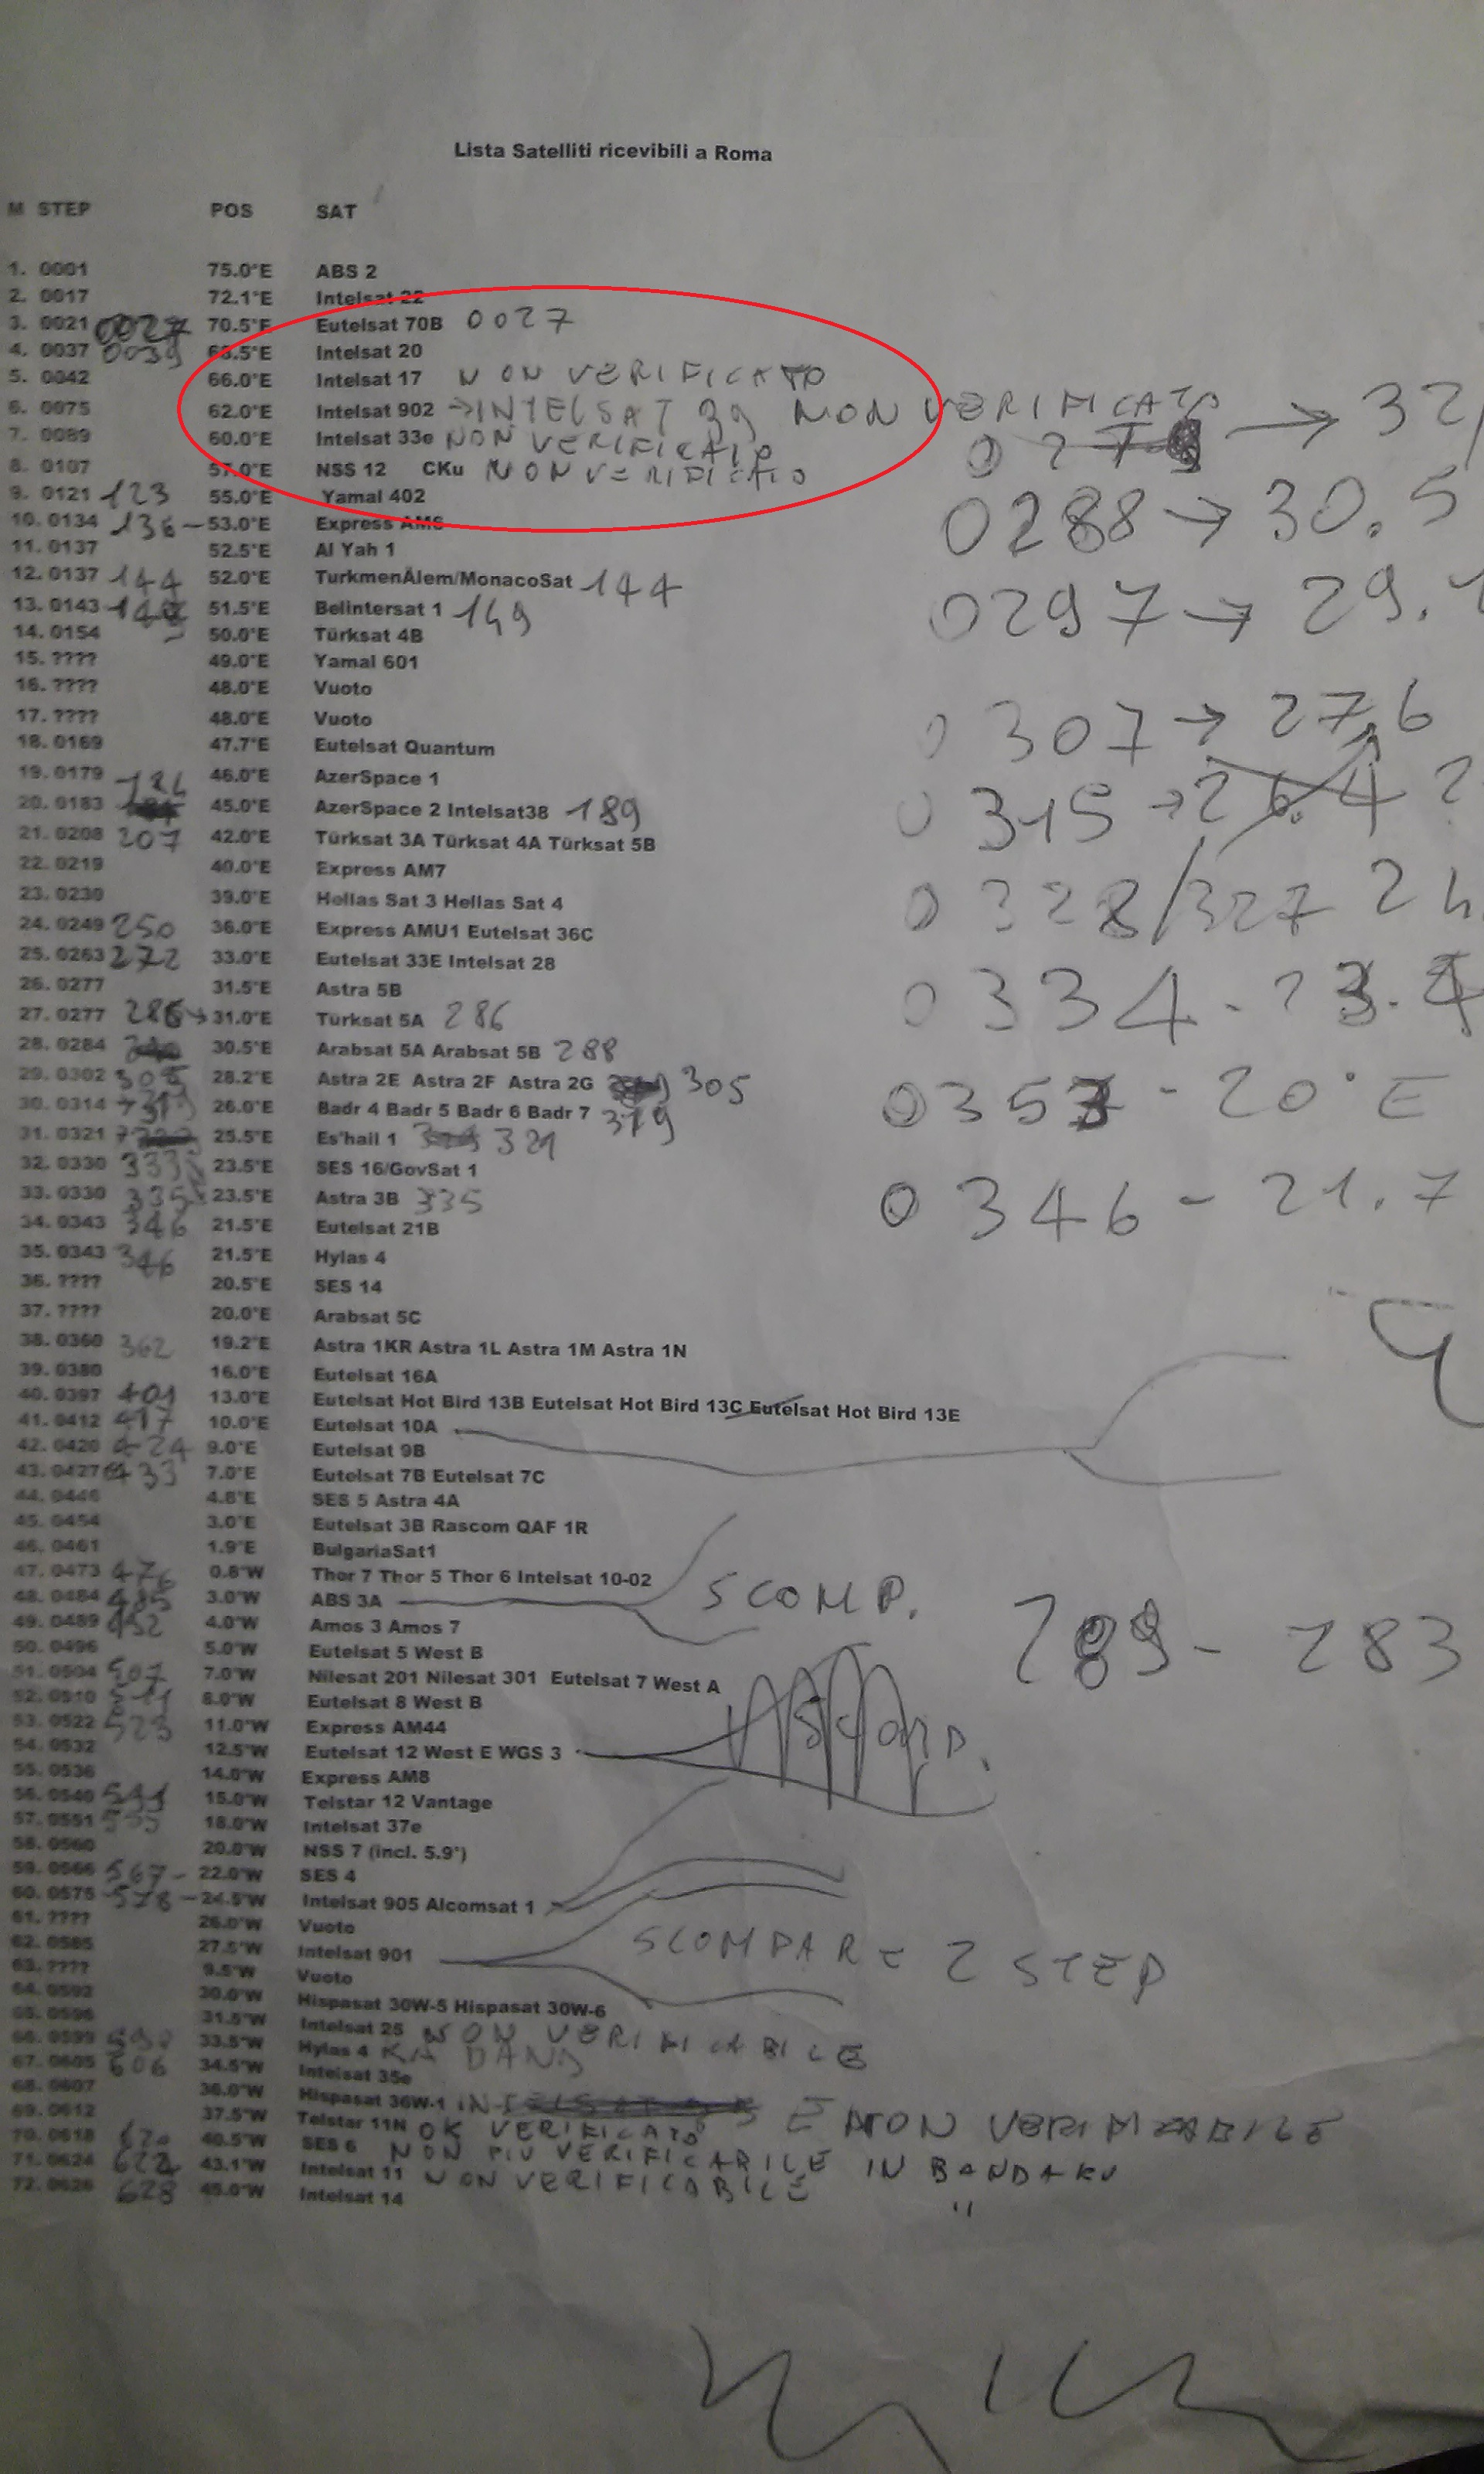 Lista Satelliti ricevibili a Roma
M STEP POS SAT
1. 0001 75.0°E ABS 2
2. 0017 72.1°E Intelsat 22
3. 0021 0027 70.5°E Eutelsat 70B 0027
4. 0037 0039 68.5°E Intelsat 20
5. 0042 66.0°E Intelsat 17 NON VERIFICATO
6. 0075 62.0°E Intelsat 902 →INTELSAT 39 NON VERIFICATO
7. 0089 60.0°E Intelsat 33e NON VERIFICATO
→ 32
8. 0107 57.0°E NSS 12 CKu NON VERIFICATO
9. 0121 123 55.0°E Yamal 402
0288 → 30.5
10. 0134 136 – 53.0°E Express AM6
11. 0137 52.5°E Al Yah 1
12. 0137 144 52.0°E TurkmenÄlem/MonacoSat 144
0297 → 29.
13. 0143 51.5°E Belintersat 1 149
14. 0154 50.0°E Türksat 4B
15. ???? 49.0°E Yamal 601
16. ???? 48.0°E Vuoto
17. ???? 48.0°E Vuoto
0307 → 27,6
18. 0169 47.7°E Eutelsat Quantum
19. 0179 186 46.0°E AzerSpace 1
20. 0183 45.0°E AzerSpace 2 Intelsat38 189
0315 → 26.4 ?
21. 0208 207 42.0°E Türksat 3A Türksat 4A Türksat 5B
22. 0219 40.0°E Express AM7
23. 0230 39.0°E Hellas Sat 3 Hellas Sat 4
0328/327
24. 0249 250 36.0°E Express AMU1 Eutelsat 36C
25. 0263 272 33.0°E Eutelsat 33E Intelsat 28
26. 0277 31.5°E Astra 5B
0334 -
27. 0277 286 → 31.0°E Türksat 5A 286
28. 0284 30.5°E Arabsat 5A Arabsat 5B 288
29. 0302 305 28.2°E Astra 2E Astra 2F Astra 2G 305
30. 0314 319 26.0°E Badr 4 Badr 5 Badr 6 Badr 7 319
0353 - 20°E
31. 0321 25.5°E Es'hail 1 321
32. 0330 333 23.5°E SES 16/GovSat 1
33. 0330 335 23.5°E Astra 3B 335
0346 - 21.7
34. 0343 346 21.5°E Eutelsat 21B
35. 0343 346 21.5°E Hylas 4
36. ???? 20.5°E SES 14
37. ???? 20.0°E Arabsat 5C
38. 0360 362 19.2°E Astra 1KR Astra 1L Astra 1M Astra 1N
39. 0380 16.0°E Eutelsat 16A
40. 0397 401 13.0°E Eutelsat Hot Bird 13B Eutelsat Hot Bird 13C Eutelsat Hot Bird 13E
41. 0412 417 10.0°E Eutelsat 10A
42. 0420 424 9.0°E Eutelsat 9B
43. 0427 433 7.0°E Eutelsat 7B Eutelsat 7C
44. 0446 4.8°E SES 5 Astra 4A
45. 0454 3.0°E Eutelsat 3B Rascom QAF 1R
46. 0461 1.9°E BulgariaSat1
47. 0473 476 0.8°W Thor 7 Thor 5 Thor 6 Intelsat 10-02
48. 0484 485 3.0°W ABS 3A SCOMP.
49. 0489 492 4.0°W Amos 3 Amos 7
289 - 283
50. 0496 5.0°W Eutelsat 5 West B
51. 0504 507 7.0°W Nilesat 201 Nilesat 301 Eutelsat 7 West A
52. 0510 511 8.0°W Eutelsat 8 West B
53. 0522 523 11.0°W Express AM44
54. 0532 12.5°W Eutelsat 12 West E WGS 3 Scomp.
55. 0536 14.0°W Express AM8
56. 0540 541 15.0°W Telstar 12 Vantage
57. 0551 555 18.0°W Intelsat 37e
58. 0560 20.0°W NSS 7 (incl. 5.9°)
59. 0566 567 - 22.0°W SES 4
60. 0575 578 - 24.5°W Intelsat 905 Alcomsat 1
61. ???? 26.0°W Vuoto
62. 0585 27.5°W Intelsat 901 SCOMPARE 2 STEP
63. ???? 9.5°W Vuoto
64. 0592 30.0°W Hispasat 30W-5 Hispasat 30W-6
65. 0596 31.5°W Intelsat 25 NON VERIFICABILE
66. 0599 33.5°W Hylas 4 KA BAND
67. 0605 606 34.5°W Intelsat 35e
68. 0607 36.0°W Hispasat 36W-1 E NON VERIFICABILE
69. 0612 37.5°W Telstar 11N OK VERIFICATO
70. 0618 620 40.5°W SES 6 NON PIU VERIFICABILE IN BANDA KU
71. 0624 622 43.1°W Intelsat 11 NON VERIFICABILE "
72. 0626 628 45.0°W Intelsat 14